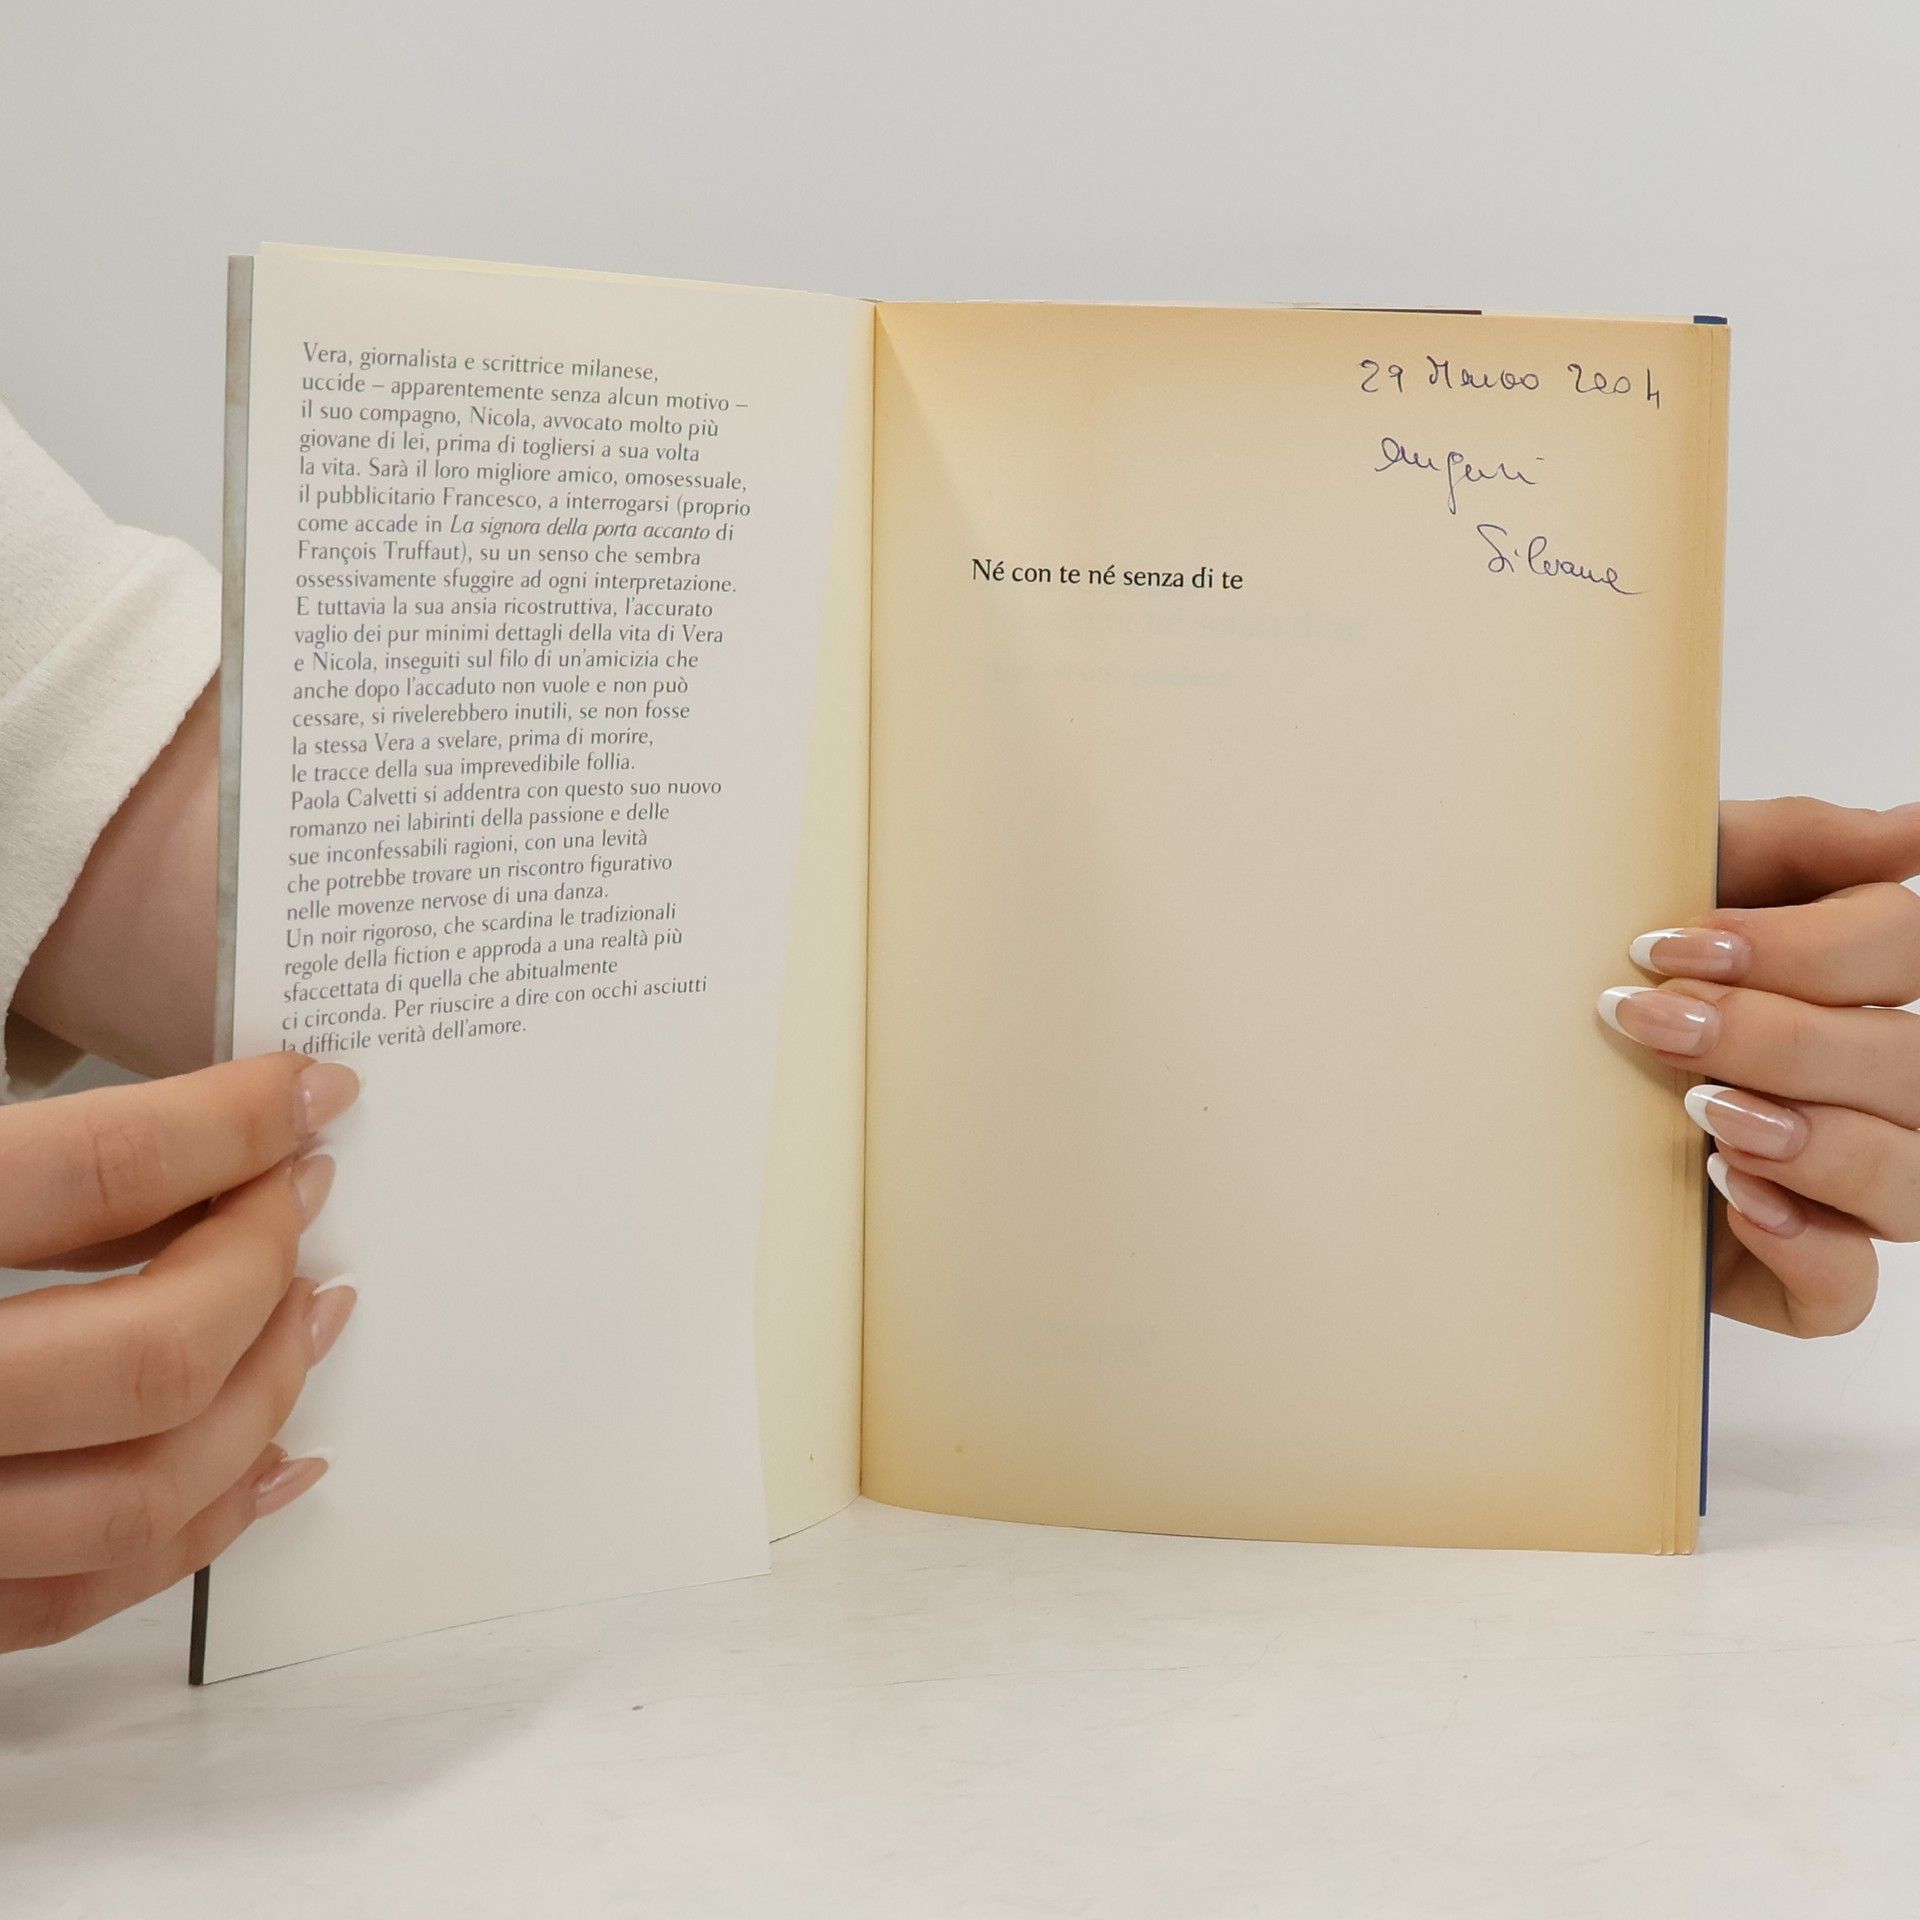 Vera, giornalista e scrittrice milanese,
uccide – apparentemente senza alcun motivo –
il suo compagno, Nicola, avvocato molto più
giovane di lei, prima di togliersi a sua volta
la vita. Sarà il loro migliore amico, omosessuale,
il pubblicitario Francesco, a interrogarsi (proprio
come accade in La signora della porta accanto di
François Truffaut), su un senso che sembra
ossessivamente sfuggire ad ogni interpretazione.
E tuttavia la sua ansia ricostruttiva, l'accurato
vaglio dei pur minimi dettagli della vita di Vera
e Nicola, inseguiti sul filo di un'amicizia che
anche dopo l'accaduto non vuole e non può
cessare, si rivelerebbero inutili, se non fosse
la stessa Vera a svelare, prima di morire,
le tracce della sua imprevedibile follia.
Paola Calvetti si addentra con questo suo nuovo
romanzo nei labirinti della passione e delle
sue inconfessabili ragioni, con una levità
che potrebbe trovare un riscontro figurativo
nelle movenze nervose di una danza.
Un noir rigoroso, che scardina le tradizionali
regole della fiction e approda a una realtà più
sfaccettata di quella che abitualmente
ci circonda. Per riuscire a dire con occhi asciutti
la difficile verità dell'amore.
29 Marzo 2004
Auguri
Silvana
Né con te né senza di te